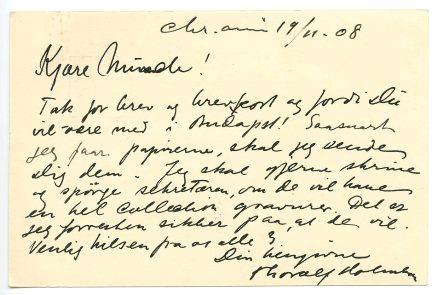 Chr.ania 19/11-08
Kjære Munch!
Tak for brev og brevkort og fordi Du
vil være med i Budapest! Saasnart
jeg faar papirerne, skal jeg sende
dig dem. Jeg skal gjerne skrive
og spørge sekretæren, om de vil have
en hel collection gravurer. Det er
jeg forresten sikker paa, at de vil.
Venlig hilsen fra os alle 3
Din hengivne
Thorolf Holmboe